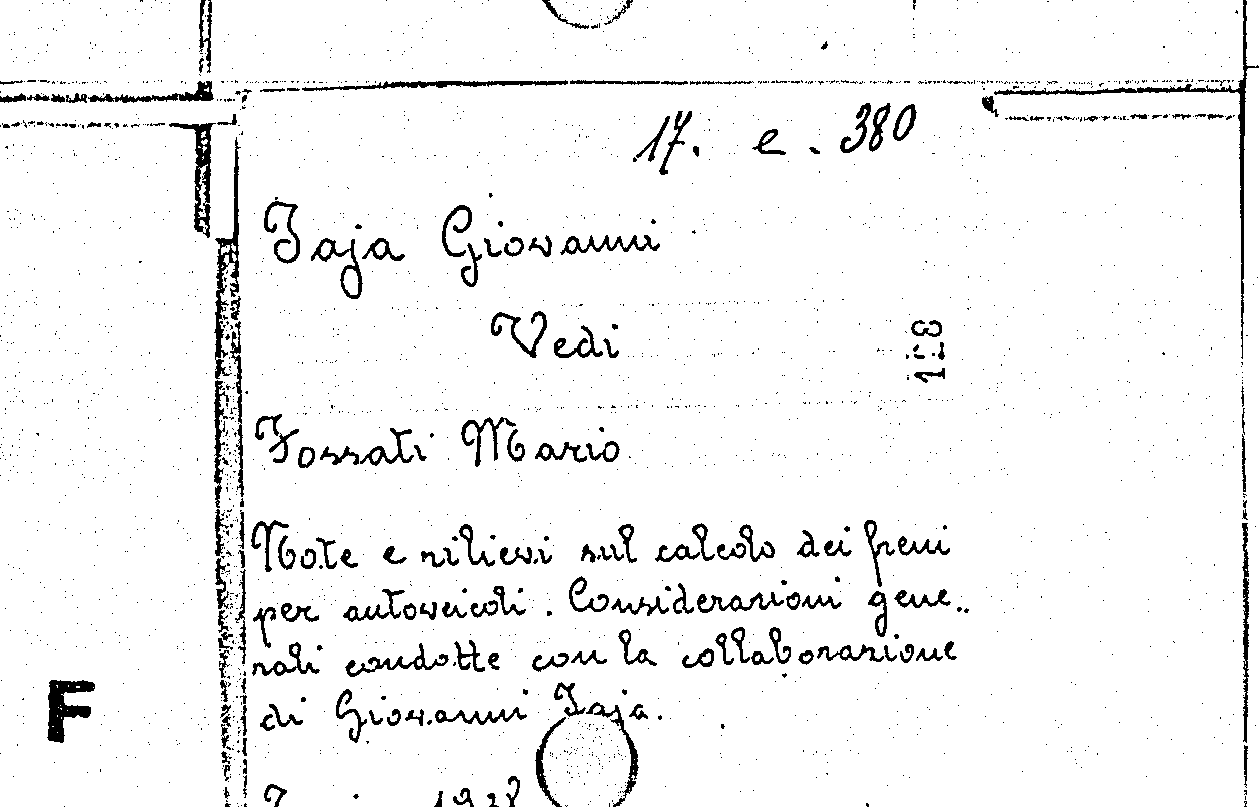 17. e. 380
Jaja Giovanni
Vedi
Fossati Mario
Note e rilievi sul calcolo dei freni
per autoveicoli. Considerazioni gene..
rali condotte con la collaborazione
di Giovanni Jaja.
1928
F